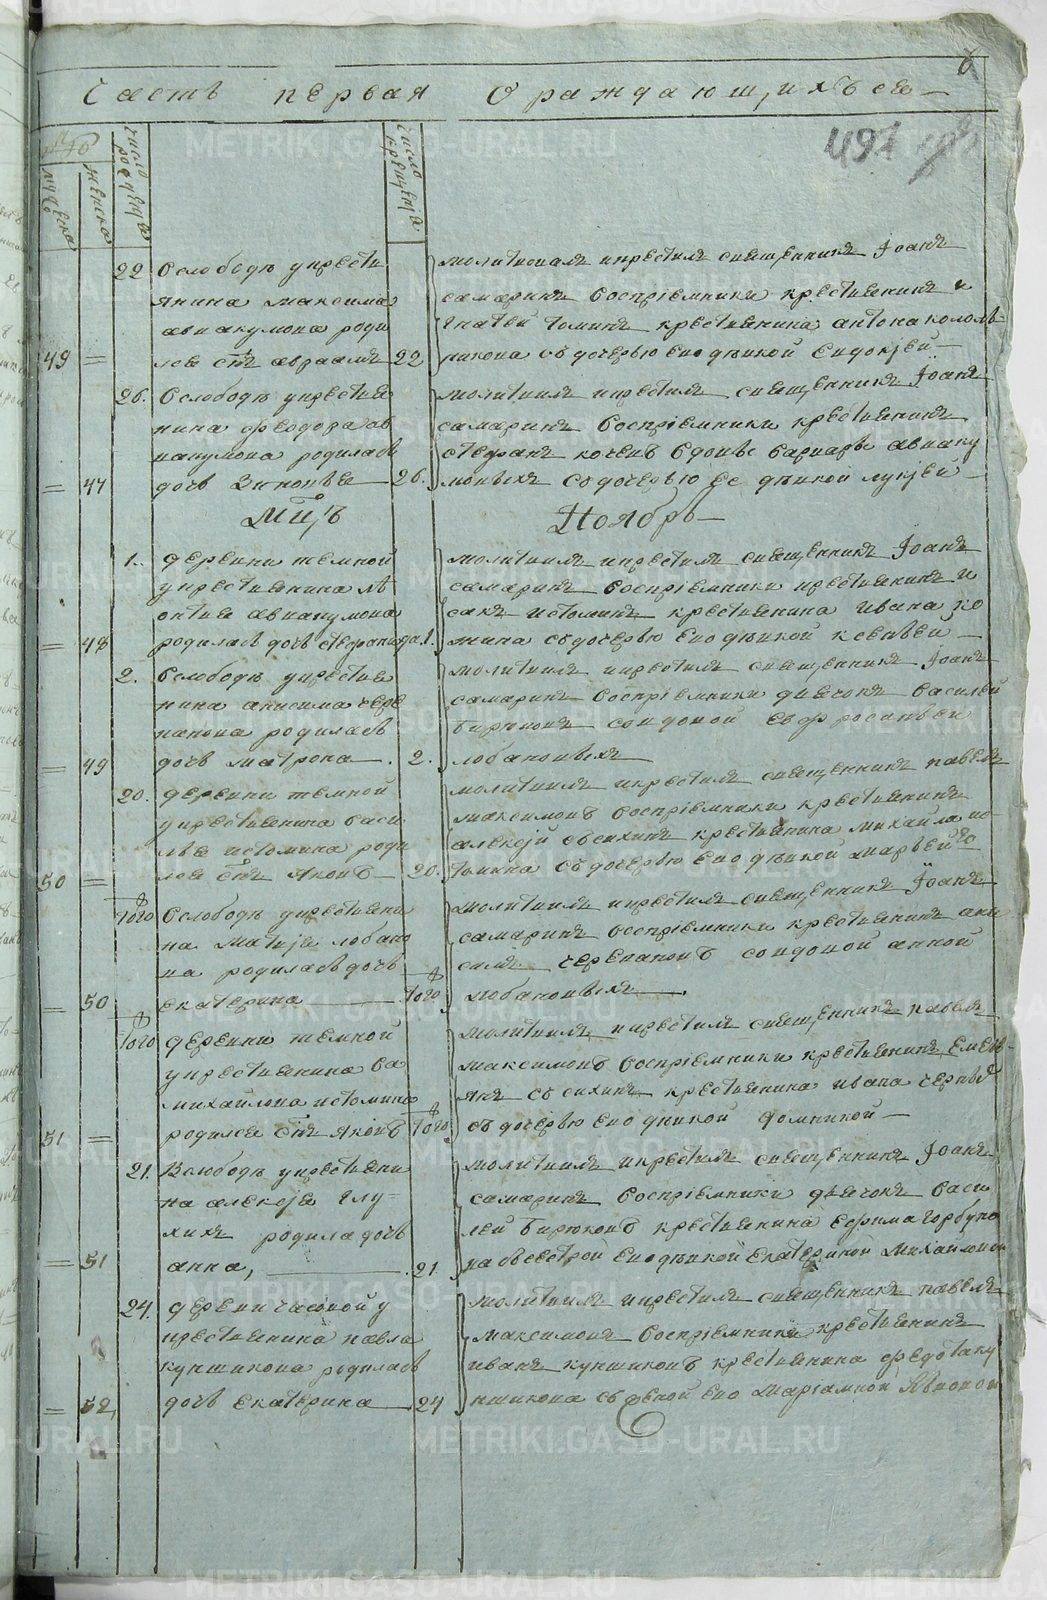 Часть первая О раждающихъся
497
мужеска
женска
число рожденiя
число крещенiя
22 Вслободѣ укрестi
янина максима
авакумова роди
49 = лся сынъ авраамъ 22
молитвовалъ икрестилъ священникъ Iоаннъ
самаринъ воспрiемники крестьянинъ и
гнатей томинъ крестьянина антона коло
никова съдочерью его дѣвкой Евдокiей
26. Вслободѣ укрестья
нина феодора ав
вакумова родилась
= 47 дочь Зиновья 26.
молитвилъ икрестилъ священникъ Iоаннъ
самаринъ воспрiемники крестьянинъ
стефанъ кочевъ вдовы варвары авваку
мовыхъ съдочерью ее дѣвкой лукiей
Мцъ Ноябрь
1. деревни темной
укрестьянина лѣ
онтья аввакумова
= 48 родилась дочь стефанида 1.
молитвилъ икрестилъ священникъ Iоаннъ
самаринъ воспрiемники крестьянинъ и
сакъ истоминъ крестьянина ивана ко
жина съдочерью его дѣвкой ксеньей
2. Вслободѣ укрестья
нина анисима чере
панова родилась
= 49 дочь матрона 2.
молитвилъ икрестилъ священникъ Iоаннъ
самаринъ воспрiемники дьячокъ василей
бирюковъ совдовой евфросиньей
лобановыхъ
20. деревни темной
укрестьянина васи
лья истомина роди
50 = лся сынъ Яковъ 20.
молитвилъ икрестилъ священникъ павелъ
максимовъ воспрiемники крестьянинъ
алексiй евсихинъ крестьянина михайла ис
томина съдочерью его дѣвкой марьей
Того Вслободѣ укрестьяни
на матфiя лобано
ва родилась дочь
= 50 екатерина Того
молитвилъ икрестилъ священникъ Iоаннъ
самаринъ воспрiемники крестьянинъ ани
симъ черепановъ совдовой анной
лобановыхъ
Того деревни темной
укрестьянина ва
михайлова истомина
51 = родился сынъ Яковъ Того
молитвилъ икрестилъ священникъ павелъ
максимовъ воспрiемники крестьянинъ Емель
янъ евсихинъ крестьянина ивана черны
съдочерью его дѣвкой домникой
21. Вслободѣ укрестьяни
на алексiя глу
хихъ родила дочь
= 51 анна, 21.
молитвилъ икрестилъ священникъ Iоаннъ
самаринъ воспрiемники дьячокъ васи
лей бирюковъ крестьянина ефима горбуно
ва съсестрой его дѣвкой екатериной михайловой
24. деревни часовой у
крестьянина павла
кукшикова родилась
= 52 дочь екатерина 24
молитвилъ икрестилъ священникъ павелъ
максимовъ воспрiемники крестьянинъ
иванъ кукшиковъ крестьянина федота ку
кшикова съ женой его марiамной